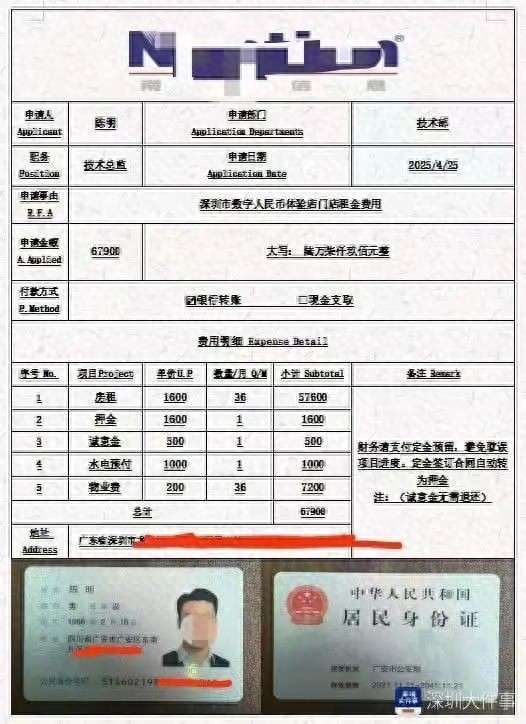 申请人 Applicant 陈明 申请部门 Application Departments 技术部
职务 Position 技术总监 申请日期 Application Date 2025/4/25
申请事由 R.F.A 深圳市数字人民币体验店门店租金费用
申请金额 A.Applied 67900 大写：陆万柒仟玖佰元整
付款方式 P.Method ☑银行转账 □现金支取
费用明细 Expense Detail
序号 No. 项目Project 单价U.P 数量/月 Q/M 小计 Subtotal 备注 Remark
1 房租 1600 36 57600
2 押金 1600 1 1600
3 诚意金 500 1 500
4 水电预付 1000 1 1000
5 物业费 200 36 7200
总计 67900
财务请支付定金预留，避免耽误
项目进度。定金签订合同自动转
为押金
注：（诚意金无需退还）
地址 Address 广东省深圳市
姓名 陈明
男 汉
1986 2 16
四川省广安市广安区东南
公民身份号码 511602198
中华人民共和国
居民身份证
签发机关 广安市公安局
有效期限 2021.11.21-2041.11.21
深圳大件事
深圳大件事